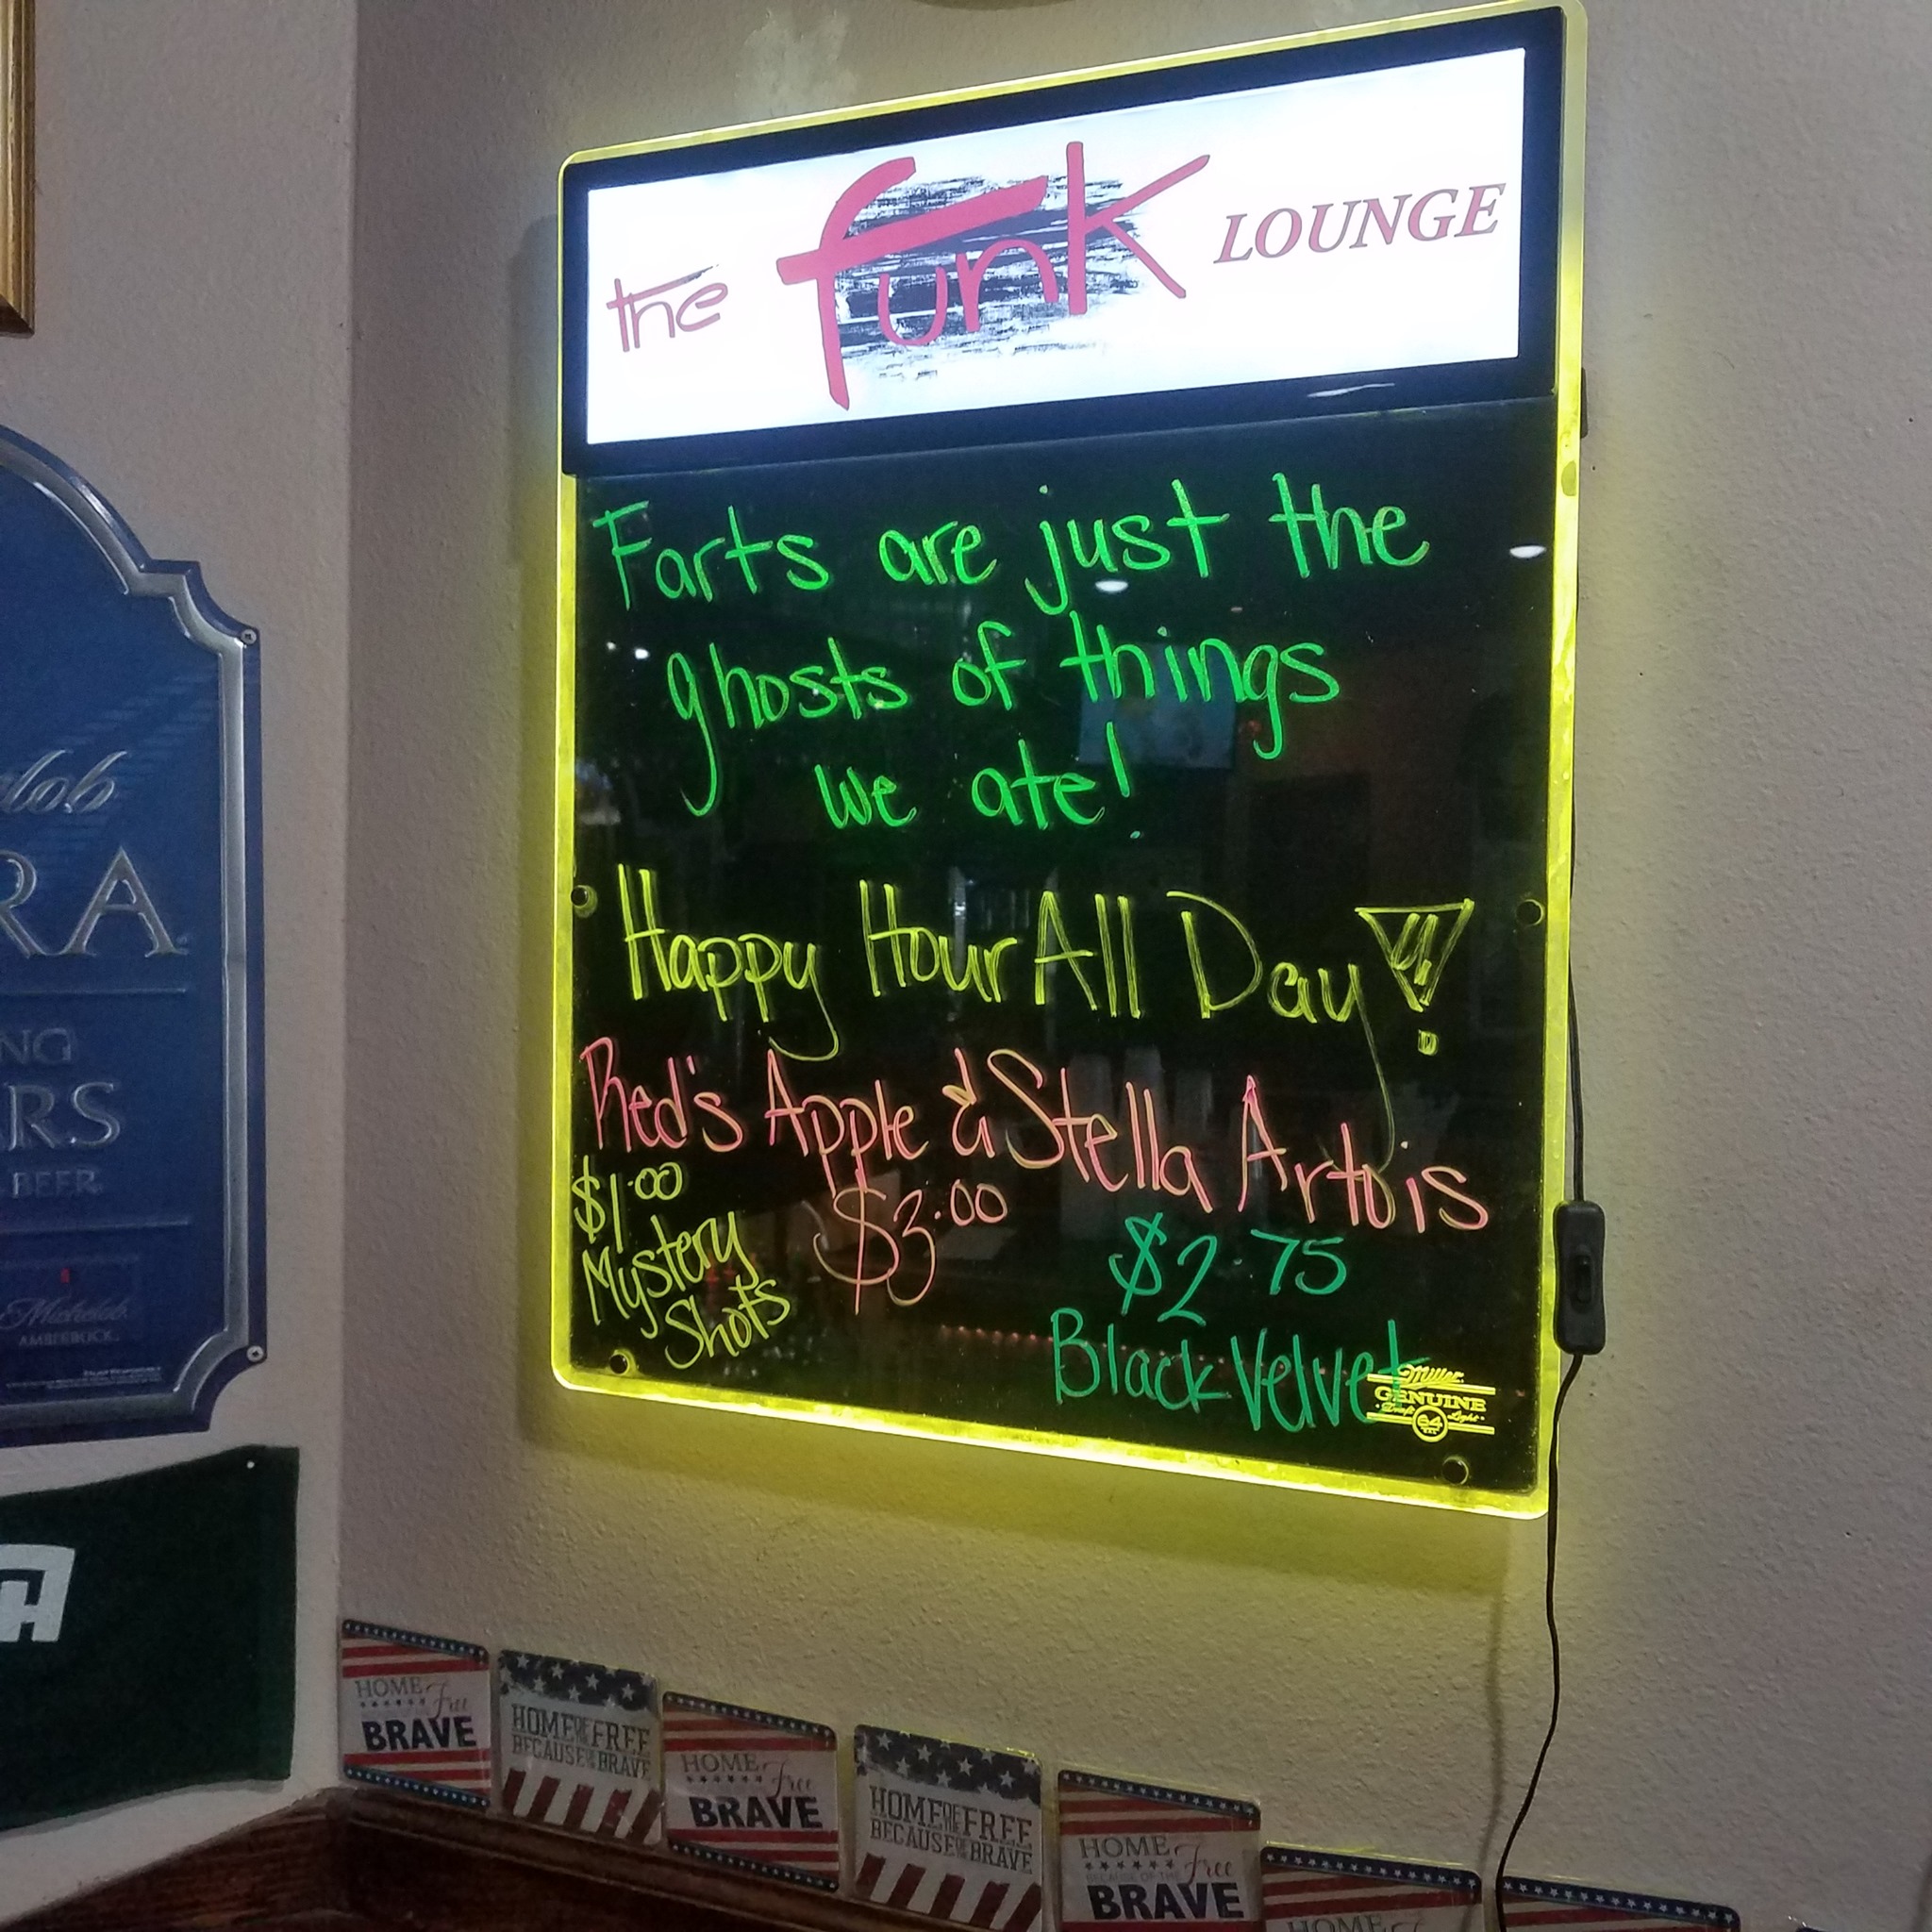 the funk LOUNGE
Farts are just the
ghosts of things
we ate!
Happy Hour All Day!
Red's Apple & Stella Artois
$3.00
$1.00
Mystery
Shots
$2.75
Black Velvet
Miller
GENUINE
Draft Light
64
RA
NG
RS
BEER
Michelob
AMBERBOCK
H
HOME
Free
BRAVE
HOME OF THE FREE
BECAUSE OF THE BRAVE
HOME
Free
BRAVE
HOME OF THE FREE
BECAUSE OF THE BRAVE
HOME
Free
BECAUSE OF THE
BRAVE
HOME